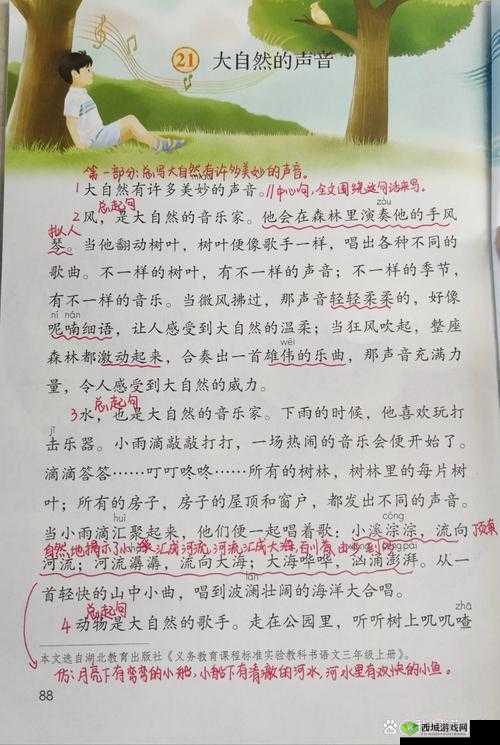 21 大自然的声音
第一部分:总写大自然有许多美妙的声音。
1大自然有许多美妙的声音。//中心句,全文围绕这句话来写。
总起句
zòu
2风,是大自然的音乐家。他会在森林里演奏他的手风
拟人
琴。当他翻动树叶,树叶便像歌手一样,唱出各种不同的
歌曲。不一样的树叶,有不一样的声音;不一样的季节,
有不一样的音乐。当微风拂过,那声音轻轻柔柔的,好像
ní nán
呢喃细语,让人感受到大自然的温柔;当狂风吹起,整座
wěi
森林都激动起来,合奏出一首雄伟的乐曲,那声音充满力
量,令人感受到大自然的威力。
总起句
3水,也是大自然的音乐家。下雨的时候,他喜欢玩打
jī
击乐器。小雨滴敲敲打打,一场热闹的音乐会便开始了。
滴滴答答……叮叮咚咚……所有的树林,树林里的每片树
叶;所有的房子,房子的屋顶和窗户,都发出不同的声音。
huì cóng
当小雨滴汇聚起来,他们便一起唱着歌:小溪淙淙,流向
顶真
自然地揭示了小溪汇成河流,河流汇成大海
péng pài
河流;河流潺潺,流向大海;大海哗哗,汹涌澎湃。从一
lán
首轻快的山中小曲,唱到波澜壮阔的海洋大合唱。
总起句
zhā
4动物是大自然的歌手。走在公园里,听听树上叽叽喳
本文选自湖北教育出版社《义务教育课程标准实验教科书语文三年级上册》。
仿:月亮下有弯弯的小船,小船下有清澈的河水,河水里有欢快的小鱼。
88
西城游戏网